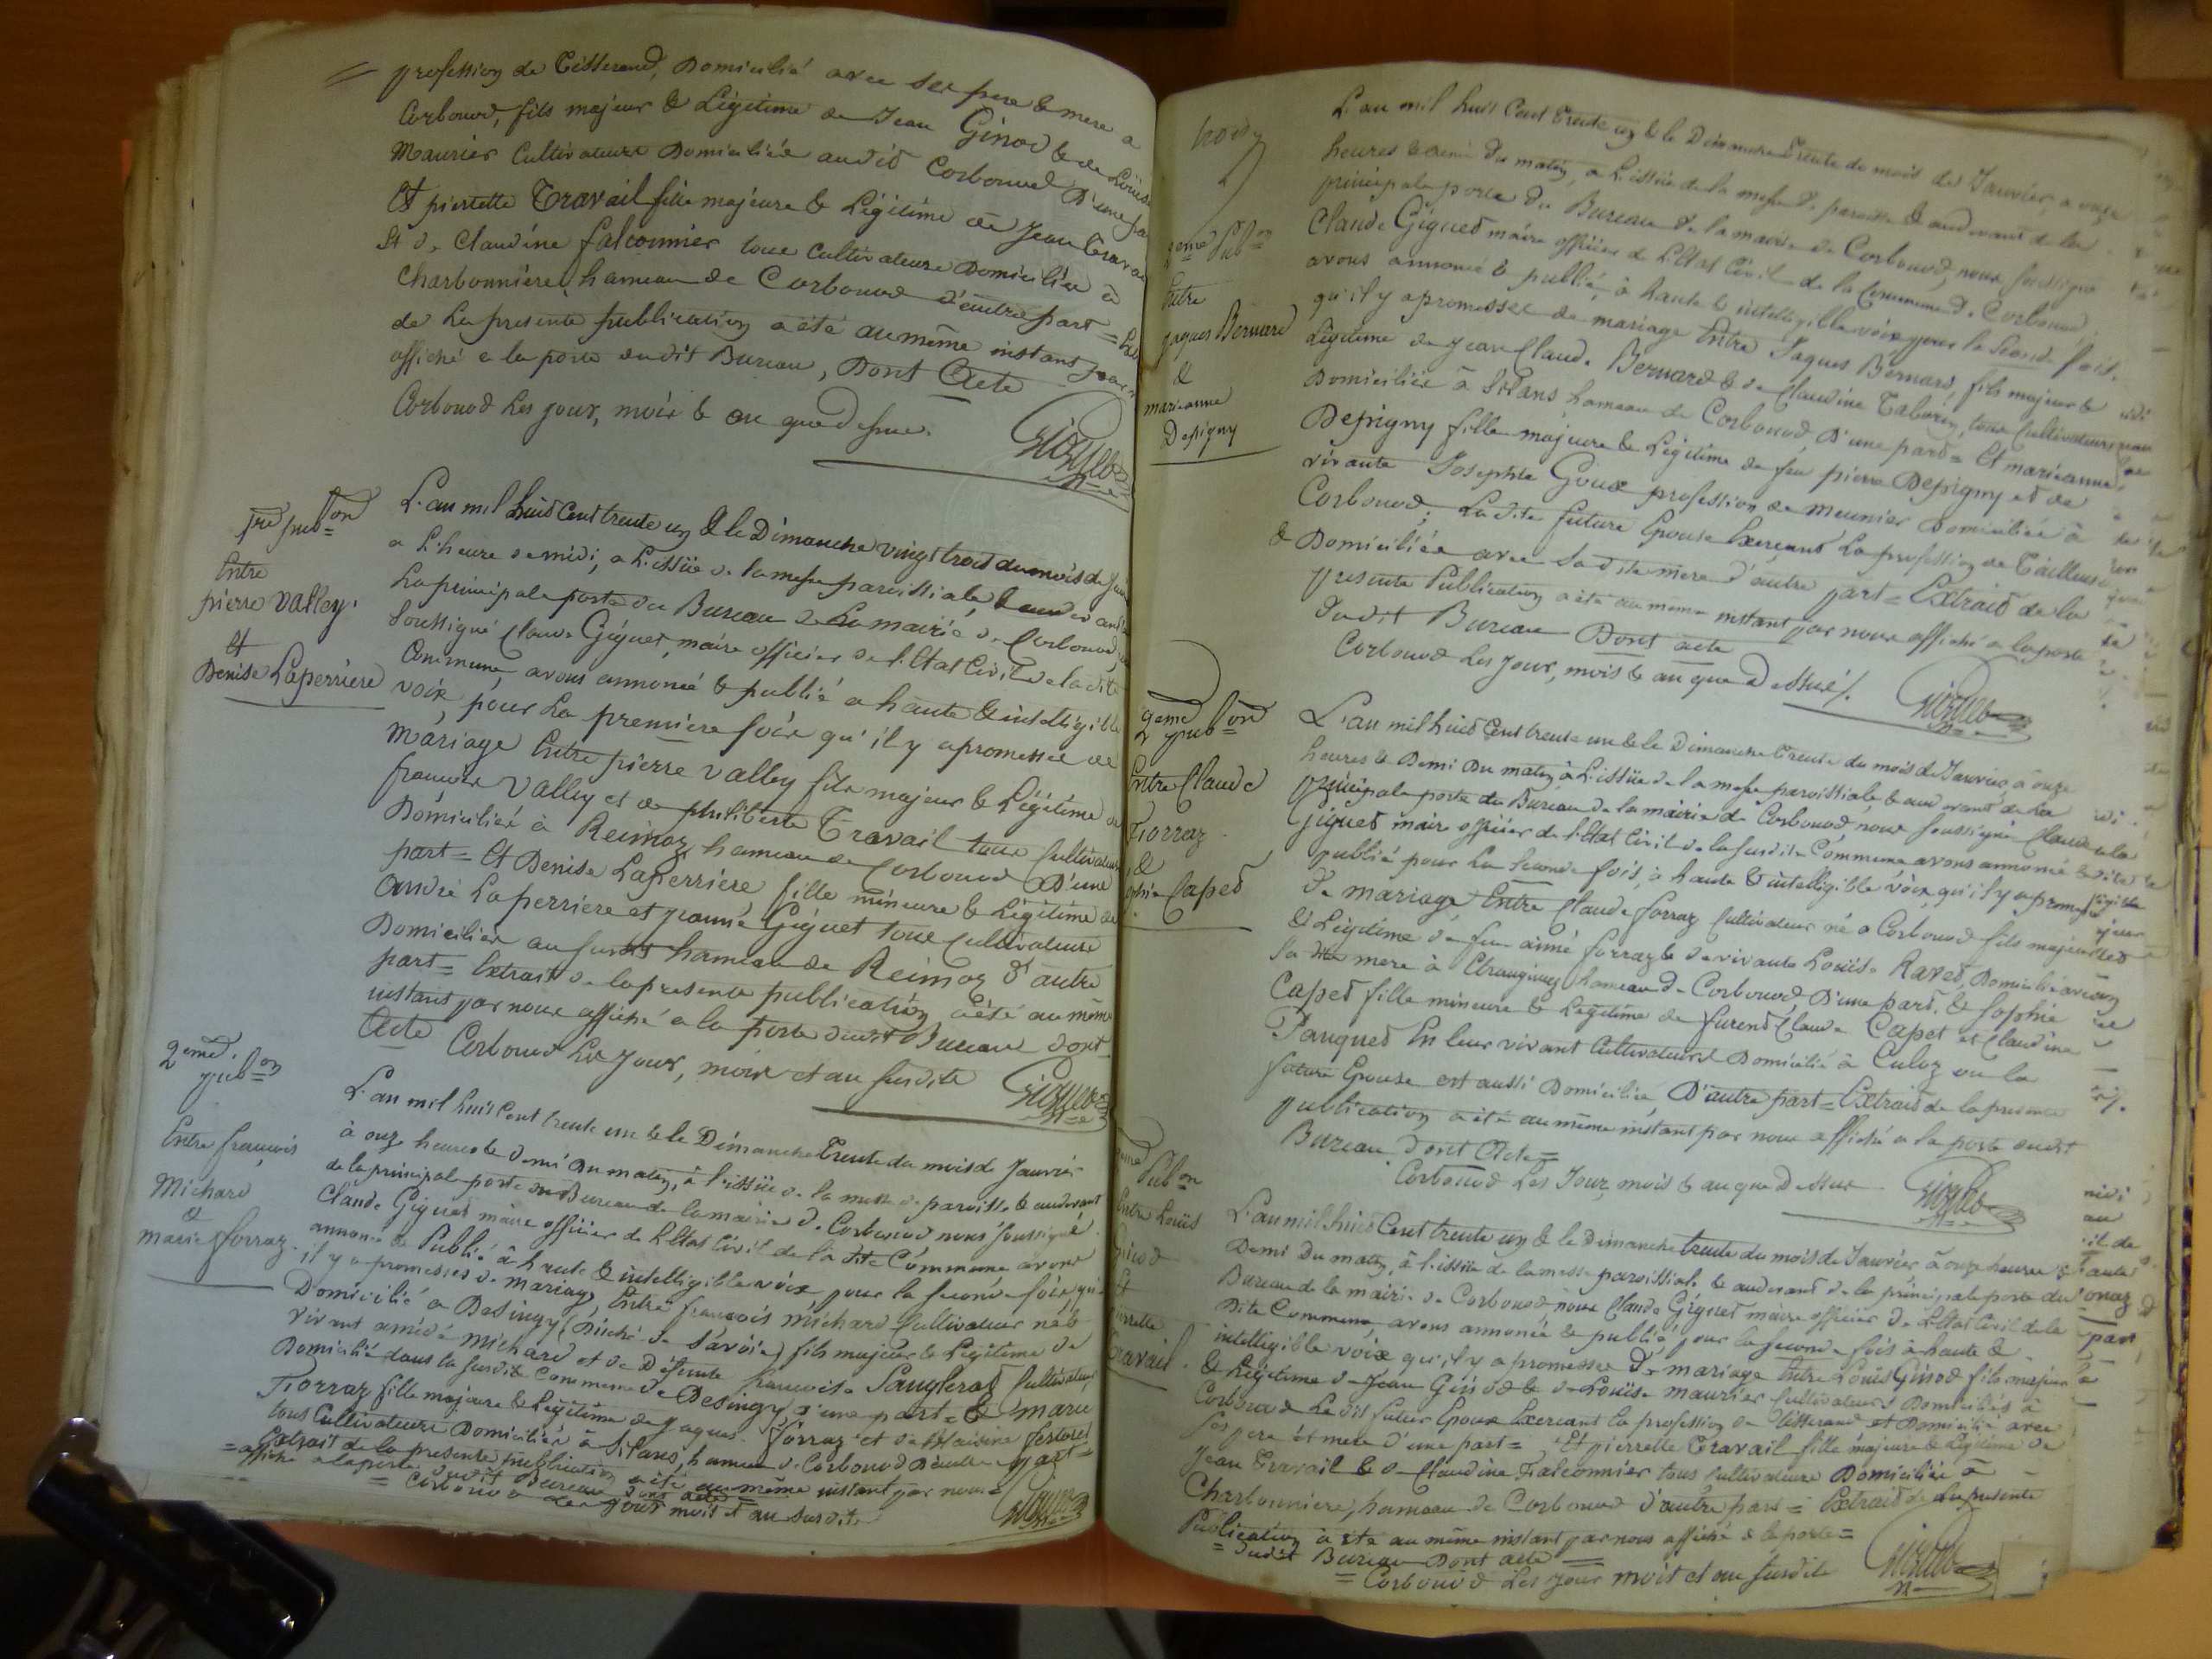 profession de Tisserand, Domicilié avec ses pere & mere a
Corbonod, fils majeur & Légitime de Jean Ginod & de Louise
Maurier Cultivateurs Domiciliés audit Corbonod D'une part
Et pierrette Travail fille majeure & Légitime de Jean Travail
Et de Claudine falconnier tous Cultivateurs Domiciliés à
Charbonniere, hameau de Corbonod d'autre part =
de la presente publication a été au même instant par
affiché a la porte dudit Bureau, Dont Acte
Corbonod Les jour, mois & an que Dessus.
Giguet
1re pub=on
Entre
pierre Valley.
Et
Denise Laperriere
L'an mil huit Cent trente un & le Dimanche vingt trois du mois de
a L'heure de midi, a L'issüe de la messe paroissiale, & audevant
La principale porte du Bureau de La mairie de Corbonod,
Soussigné Claude Giguet, maire officier de l'Etat Civil de la dite
Commune, avons annoncé & publié a haute & intelligible
voix, pour La premiere fois qu'il y a promesse de
Mariage Entre pierre Valley fils majeur & Légitime de
francois Valley et de philiberte Travail tous Cultivateurs
Domiciliés à Reimoz, hameau de Corbonod D'une
part = Et Denise Laperriere, fille mineure & Légitime de
André Laperriere et jeanne Giguet tous Cultivateurs
Domiciliés au susdit hameau de Reimoz d'autre
part = Extrait de la presente publication a été au même
instant par nous affiché a la porte dudit Bureau dont
Acte Corbonod Les Jour, mois et an susdits
Giguet
2eme.
pub=on
Entre francois
Michard
&
marie forraz.
L'an mil huit Cent trente un & le Dimanche Trente du mois de Janvier
à onze heures & demi du matin, à l'issüe de la messe de paroisse & audevant
de la principale porte du Bureau de la mairie de Corbonod nous soussigné
Claude Giguet maire officier de L'Etat Civil de la dite Commune avons
annoncé & Publié à haute & intelligible voix pour la seconde fois, qu'
il y a promesses de mariage, Entre francois michard Cultivateur né &
Domicilié a Desingy (Duché de Savoie) fils majeur & Légitime de
vivant amédé Michard et de Défunte francoise Saugleras Cultivateurs
Domiciliés dans la susdite Commune de Desingy d'une part = & marie
Forraz fille majeure & Légitime de jaques forraz et de
tous Cultivateurs Domiciliés à Silans, hameau de Corbonod D'autre part =
Extrait de la presente publication a été au même instant par nous
= affiché a la porte dudit Bureau dont acte =
= Corbonod les jour mois et an susdits
Giguet
2eme Pub=on
Entre
jaques Bernard
&
marianne
Depigny
L'an mil huit Cent Trente un & le Dimanche Trente du mois de Janvier, a onze
heures & demi du matin, a L'issüe de la messe de paroisse & audevant de la
principale porte du Bureau de la mairie de Corbonod, nous soussigné
Claude Giguet maire officier de L'Etat Civil de la Commune de Corbonod,
avons annoncé & publié, à haute & intelligible voix pour la seconde fois.
qu'il y a promesses de mariage Entre Jaques Bernard, fils majeur &
Légitime de Jean Claude Bernard & de Claudine Taburin, tous Cultivateurs
Domiciliés à Silans hameau de Corbonod, D'une part = Et marieanne
Depigny fille majeure & Légitime de feu pierre Depigny et de
vivante Josephte Goux profession de meunier Domiciliée à
Corbonod, La dite future Epouse Exercant La profession de Tailleuse
& Domiciliée avec Sadite mere d'autre part = Extrait de la
presente Publication a été au même instant par nous affiché a la porte
dudit Bureau Dont acte
Corbonod Les Jour, mois & an que Dessus ./.
Giguet
2eme pub=on
Entre Claude
Forraz
&
Sophie Capet
L'an mil huit Cent trente un & le Dimanche trente du mois de Janvier, à onze
heures & Demi Du matin, à L'issüe de la messe paroissiale & audevant de la
principale porte du Bureau de la mairie de Corbonod, nous soussigné Claude
Giguet maire officier de L'Etat Civil de la susdite Commune avons annoncé &
publié pour La seconde fois, à haute & intelligible voix, qu'il y a promesses
de mariage Entre Claude forraz Cultivateur né a Corbonod fils majeur
& Légitime de feu aimé forraz & de vivante Louise Ravet, Domicilié avec
sa dite mere à Etranginay hameau de Corbonod D'une part. & Sophie
Capet fille mineure & Légitime de furent Claude Capet et Claudine
Fauquet En leur vivant Cultivateurs Domiciliés à Culoz ou la
future Epouse est aussi Domiciliée, D'autre part = Extrait de la presente
publication a été au même instant par nous affiché a la porte dudit
Bureau Dont Acte =
Corbonod Les Jour, mois & an que Dessus
Giguet
Pub=on
Entre Louis
Ginod
Et
pierrette
Travail.
L'an mil huit Cent trente un & le Dimanche trente du mois de Janvier à onze heures &
Demi Du matin, à l'issüe de la messe paroissiale & audevant de la principale porte du
Bureau de la mairie de Corbonod nous Claude Giguet maire officier de L'Etat Civil de la
Dite Commune, avons annoncé & publié, pour la seconde fois à haute &
intelligible voix qu'il y a promesses De mariage Entre Louis Ginod fils majeur
& Légitime de Jean Ginod & de Louise maurier Cultivateurs Domiciliés à
Corbonod Ledit futur Epoux Exercant la profession de Tisserand et Domicilié avec
ses pere et mere d'une part = Et pierrette Travail fille majeure & Légitime de
Jean Travail & de Claudine Falconnier tous Cultivateurs Domiciliés à
Charbonniere, hameau de Corbonod d'autre part = Extrait de La presente
Publication a été au même instant par nous affiché a la porte =
= dudit Bureau Dont acte =
= Corbonod Les Jour mois et an susdits
Giguet